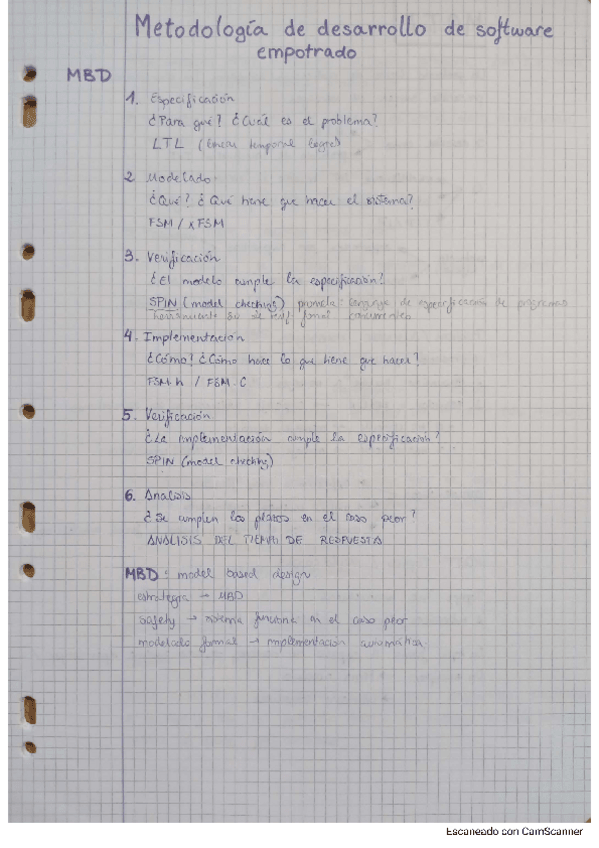 Metodología de desarrollo de software
empotrado
MBD
1. Especificación
¿Para qué? ¿Cuál es el problema?
LTL (linear temporal logic)
2 Modelado
¿Qué? ¿Qué tiene que hacer el sistema?
FSM / xFSM
3. Verificación
¿El modelo cumple la especificación?
SPIN (model checking) promela: lenguaje de especificación de programas
herramienta formal concurrente
4. Implementación
¿Cómo? ¿Cómo hace lo que tiene que hacer?
FSM.h / FSM.C
5. Verificación
¿La implementación cumple la especificación?
SPIN (model checking)
6. Analisis
¿Se cumplen los plazos en el caso peor?
ANALISIS DEL TIEMPO DE RESPUESTA
MBD: model based design
estrategia → MBD
safety → sistema funcione en el caso peor
modelado formal → implementación automática.
Escaneado con CamScanner